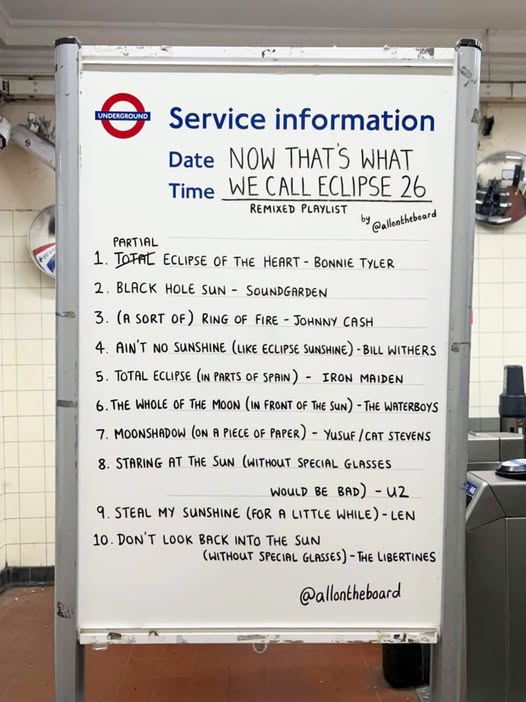 UNDERGROUND
Service information
Date NOW THAT'S WHAT
Time WE CALL ECLIPSE 26
REMIXED PLAYLIST
by @allontheboard
PARTIAL
1. TOTAL ECLIPSE OF THE HEART - BONNIE TYLER
2. BLACK HOLE SUN - SOUNDGARDEN
3. (A SORT OF) RING OF FIRE - JOHNNY CASH
4. AIN'T NO SUNSHINE (LIKE ECLIPSE SUNSHINE) - BILL WITHERS
5. TOTAL ECLIPSE (IN PARTS OF SPAIN) - IRON MAIDEN
6. THE WHOLE OF THE MOON (IN FRONT OF THE SUN) - THE WATERBOYS
7. MOONSHADOW (ON A PIECE OF PAPER) - YUSUF/CAT STEVENS
8. STARING AT THE SUN (WITHOUT SPECIAL GLASSES
WOULD BE BAD) - U2
9. STEAL MY SUNSHINE (FOR A LITTLE WHILE) - LEN
10. DON'T LOOK BACK INTO THE SUN
(WITHOUT SPECIAL GLASSES) - THE LIBERTINES
@allontheboard